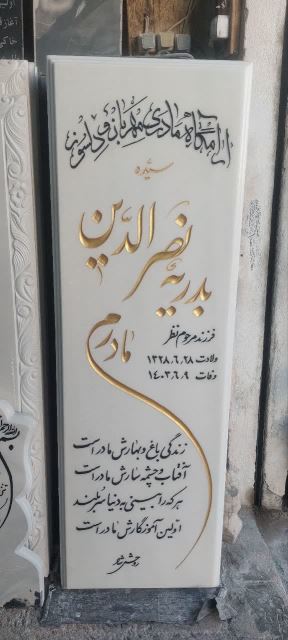 آرامگاه مادری مهربان و دلسوز
سیده
بدریه نصرالدین
فرزند مرحوم نظر
ولادت ۱۳۲۸,۶,۲۸
وفات ۱۴۰۳,۶,۹
مادرم
زندگی باغ و بهارش مادر است
آفتاب و چشمه سارش مادر است
هر که را بینی به دنیا سربلند
اولین آموزگارش مادر است
روحش شاد